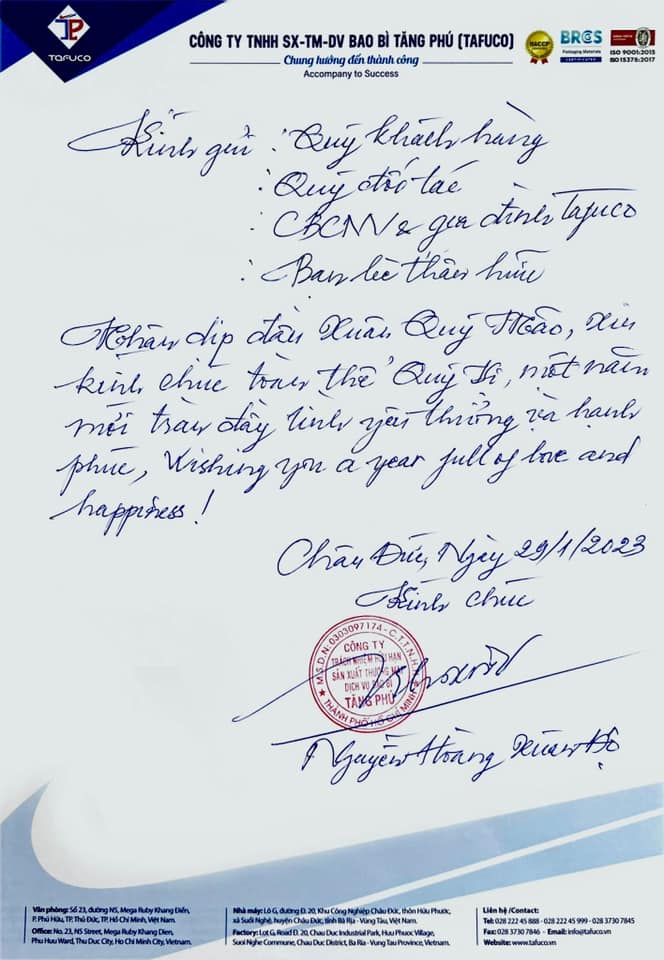 TP
TAFUCO
CÔNG TY TNHH SX-TM-DV BAO BÌ TĂNG PHÚ (TAFUCO)
Chung hưởng đến thành công
Accompany to Success
HACCP
BRCS
Packaging Materials
CERTIFICATED
ISO 9001:2015
ISO 15378:2017
Kính gửi : Quý khách hàng
: Quý đối tác
: CBCNV & gia đình Tafuco
: Bạn bè thân hữu
Nhân dịp đầu Xuân Quý Mão, xin
kính chúc toàn thể Quý vị, một năm
mới tràn đầy tình yêu thương và hạnh
phúc, Wishing you a year full of love and
happiness!
Châu Đức, Ngày 29/1/2023
Kính chúc
M.S.D.N: 0303097174 - C.T.T.N.H.H
CÔNG TY
TRÁCH NHIỆM HỮU HẠN
SẢN XUẤT THƯƠNG MẠI
DỊCH VỤ BAO BÌ
TĂNG PHÚ
THÀNH PHỐ HỒ CHÍ MINH
Nguyễn Hoàng Xuân
Văn phòng: Số 23, đường N5, Mega Ruby Khang Điền,
P. Phú Hữu, TP. Thủ Đức, TP. Hồ Chí Minh, Việt Nam.
Office: No. 23, N5 Street, Mega Ruby Khang Dien,
Phu Huu Ward, Thu Duc City, Ho Chi Minh City, Vietnam.
Nhà máy: Lô G, đường Đ. 20, Khu Công Nghiệp Châu Đức, thôn Hữu Phước,
xã Suối Nghệ, huyện Châu Đức, tỉnh Bà Rịa - Vũng Tàu, Việt Nam.
Factory: Lot G, Road D. 20, Chau Duc Industrial Park, Huu Phuoc Village,
Suoi Nghe Commune, Chau Duc District, Ba Ria - Vung Tau Province, Vietnam.
Liên hệ/Contact:
Tel: 028 222 45 888 - 028 222 45 999 - 028 3730 7845
Fax: 028 3730 7846 - Email: info@tafuco.vn
Website: www.tafuco.vn